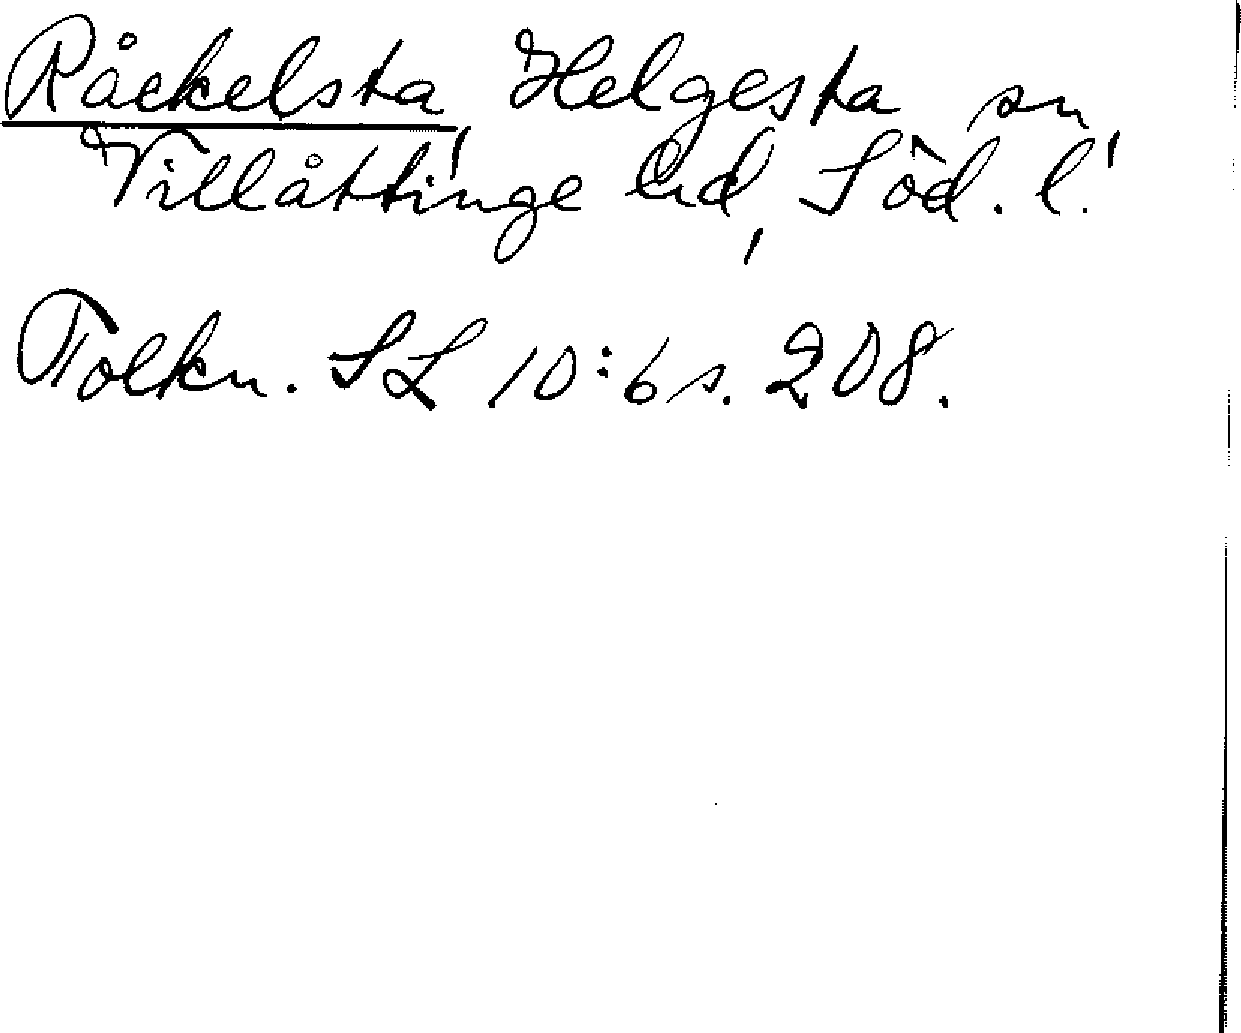 Råckelsta, Helgesta sn,
Villåttinge hd, Söd. l.
Folkn. SL 10:6 s. 208.